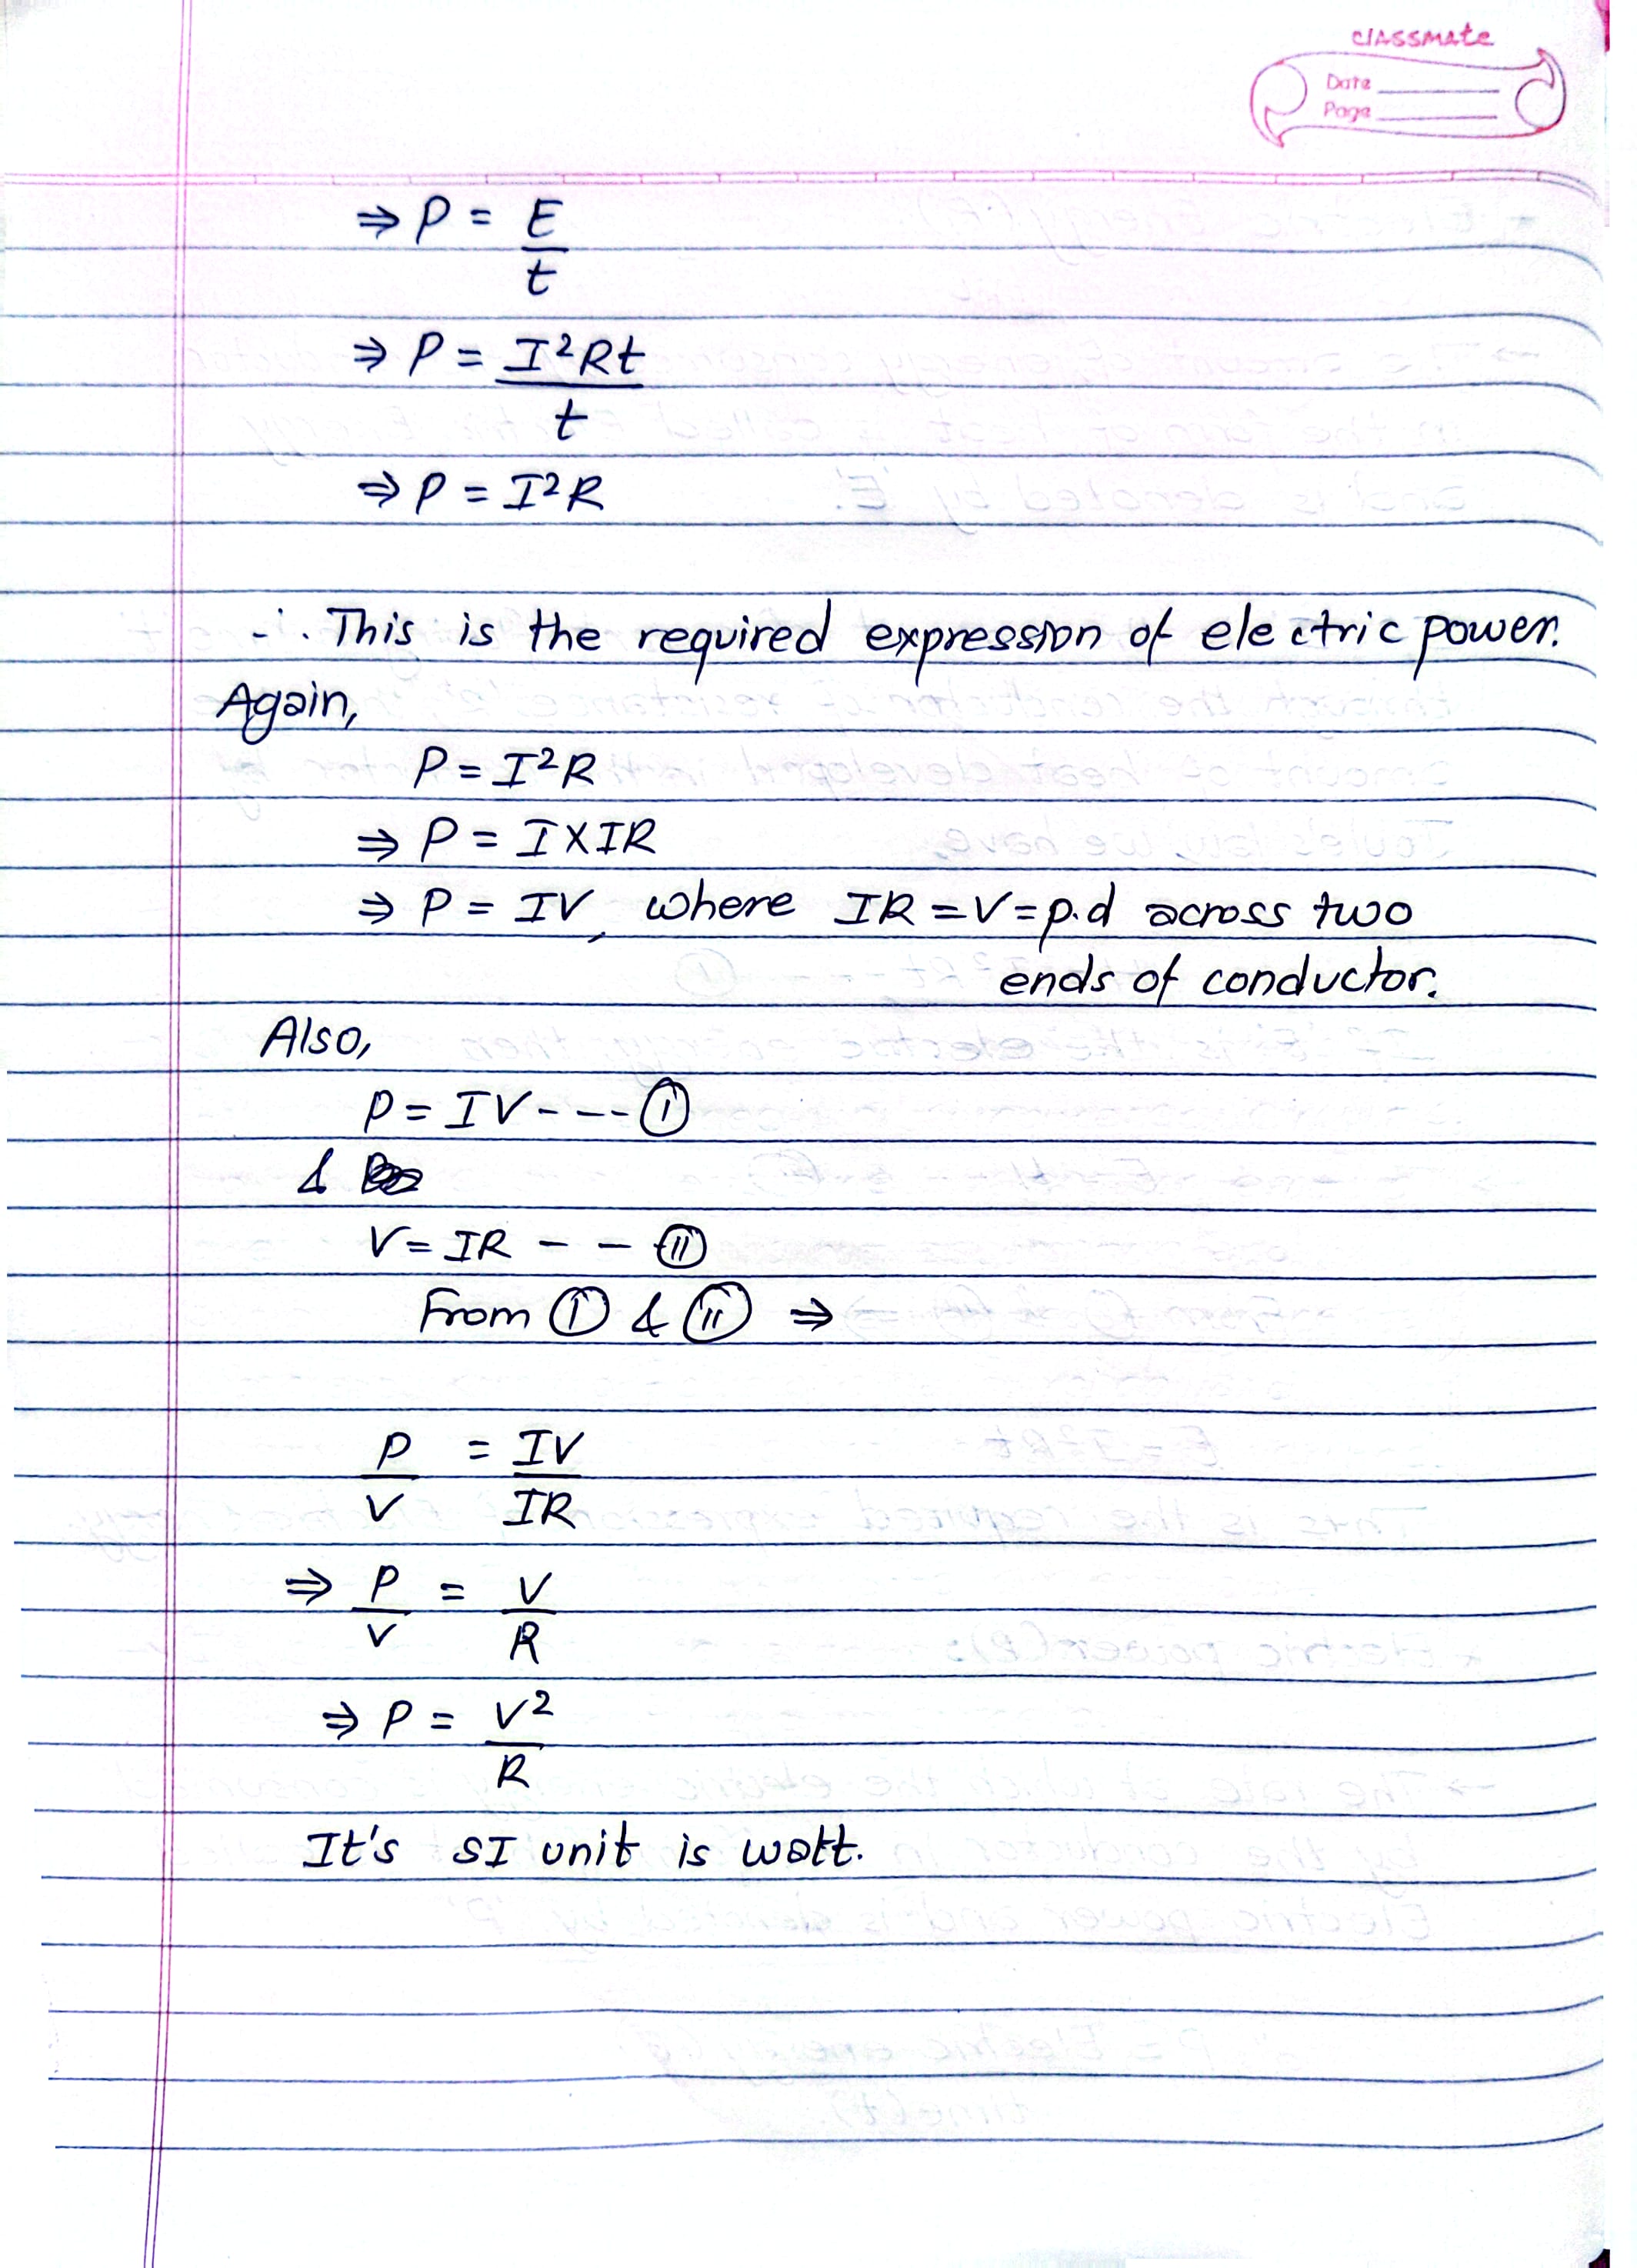 classmate
Date
Page
⇒ P = E/t
⇒ P = I²Rt/t
⇒ P = I²R
∴ This is the required expression of electric power.
Again,
P = I²R
⇒ P = I×IR
⇒ P = IV, where IR = V = p.d across two
ends of conductor.
Also,
P = IV - - - (i)
&
V = IR - - (ii)
From (i) & (ii) ⇒
P/V = IV/IR
⇒ P/V = V/R
⇒ P = V²/R
It's SI unit is watt.